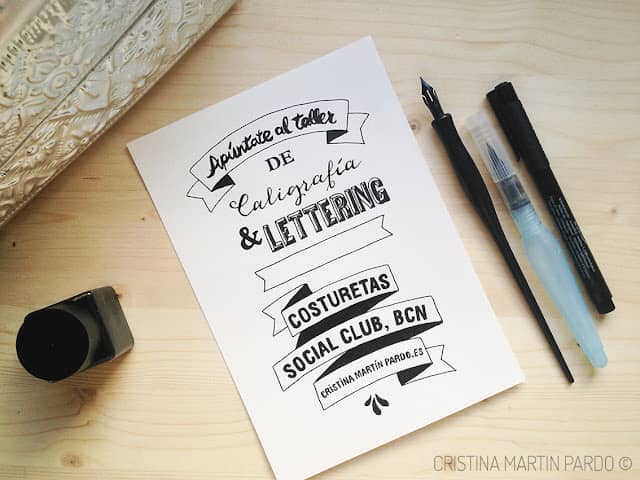 Apúntate al taller
DE
Caligrafía
& LETTERING
COSTURETAS
SOCIAL CLUB, BCN
CRISTINA MARTÍN PARDO.ES
CRISTINA MARTIN PARDO ©